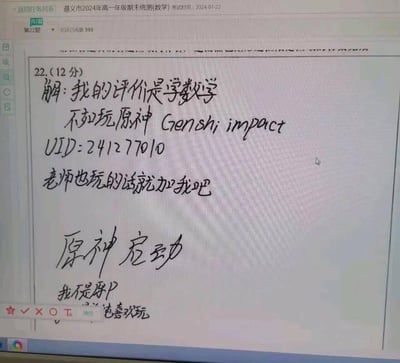 返回任务列表 遵义市2024年高一年级期末统测(数学) 考试时间：2024-01-22
第22题
22.(12分)
解：我的评价是学数学
不如玩原神 Genshi impact
UID=241277010
老师也玩的话就加我吧
原神 启动
我不是原P
也喜欢玩